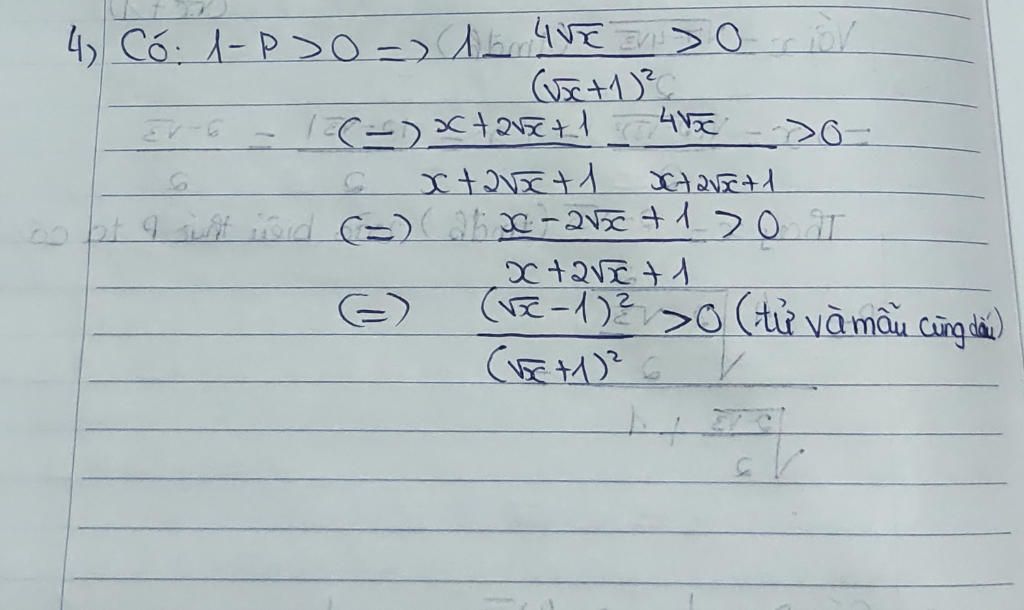 4, Có: 1 - P > 0 => 1 - 4√x / (√x + 1)² > 0
(=) x + 2√x + 1 / x + 2√x + 1 - 4√x / x + 2√x + 1 > 0
(=) x - 2√x + 1 / x + 2√x + 1 > 0
(=) (√x - 1)² / (√x + 1)² > 0 (tử và mẫu cùng dấu)